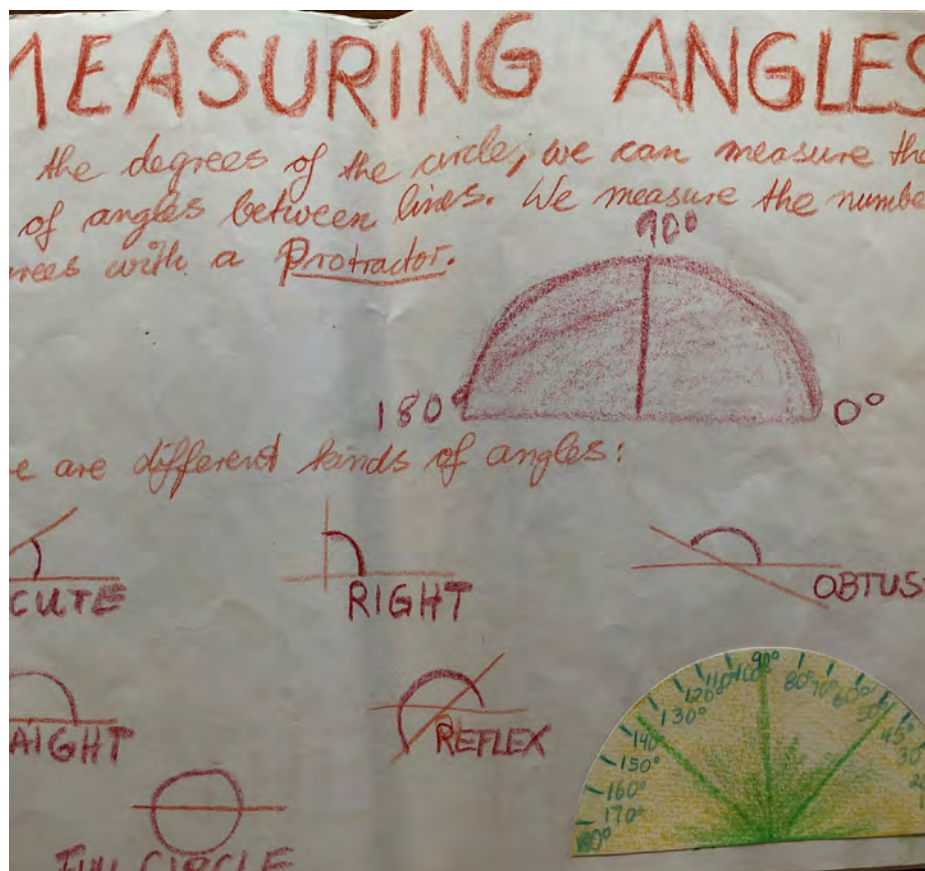 MEASURING ANGLES
the degrees of the circle, we can measure the
of angles between lines. We measure the numbe
rees with a Protractor.
90°
180° 0°
e are different kinds of angles:
CUTE RIGHT OBTUS
AIGHT REFLEX
FULL CIRCLE
90°
100° 80°
110° 70°
120° 60°
130° 50°
140 45°
150° 30°
160°
170°
180°